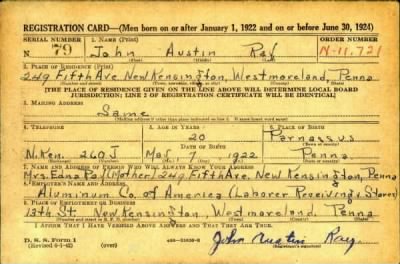 REGISTRATION CARD—(Men born on or after January 1, 1922 and on or before June 30, 1924)
SERIAL NUMBER 1. NAME (Print) ORDER NUMBER
N 79 John Austin Ray N-11,721
2. PLACE OF RESIDENCE (Print)
249 Fifth Ave. New Kensington, Westmoreland, Penna
[THE PLACE OF RESIDENCE GIVEN ON THE LINE ABOVE WILL DETERMINE LOCAL BOARD
JURISDICTION; LINE 2 OF REGISTRATION CERTIFICATE WILL BE IDENTICAL]
3. MAILING ADDRESS
Same
4. TELEPHONE 5. AGE IN YEARS 6. PLACE OF BIRTH
20 Parnassus
DATE OF BIRTH
N. Ken. 260 J May 7 1922 Penna
7. NAME AND ADDRESS OF PERSON WHO WILL ALWAYS KNOW YOUR ADDRESS
Mrs. Edna Ray (Mother) 249 Fifth Ave, New Kensington, Penna
8. EMPLOYER'S NAME AND ADDRESS
Aluminum Co. of America (Laborer Receiving & Stores)
9. PLACE OF EMPLOYMENT OR BUSINESS
13th St. New Kensington, Westmoreland, Penna
I AFFIRM THAT I HAVE VERIFIED ABOVE ANSWERS AND THAT THEY ARE TRUE.
D. S. S. Form 1
(Revised 6-9-42) (over)
John Austin Ray
(Registrant's signature)